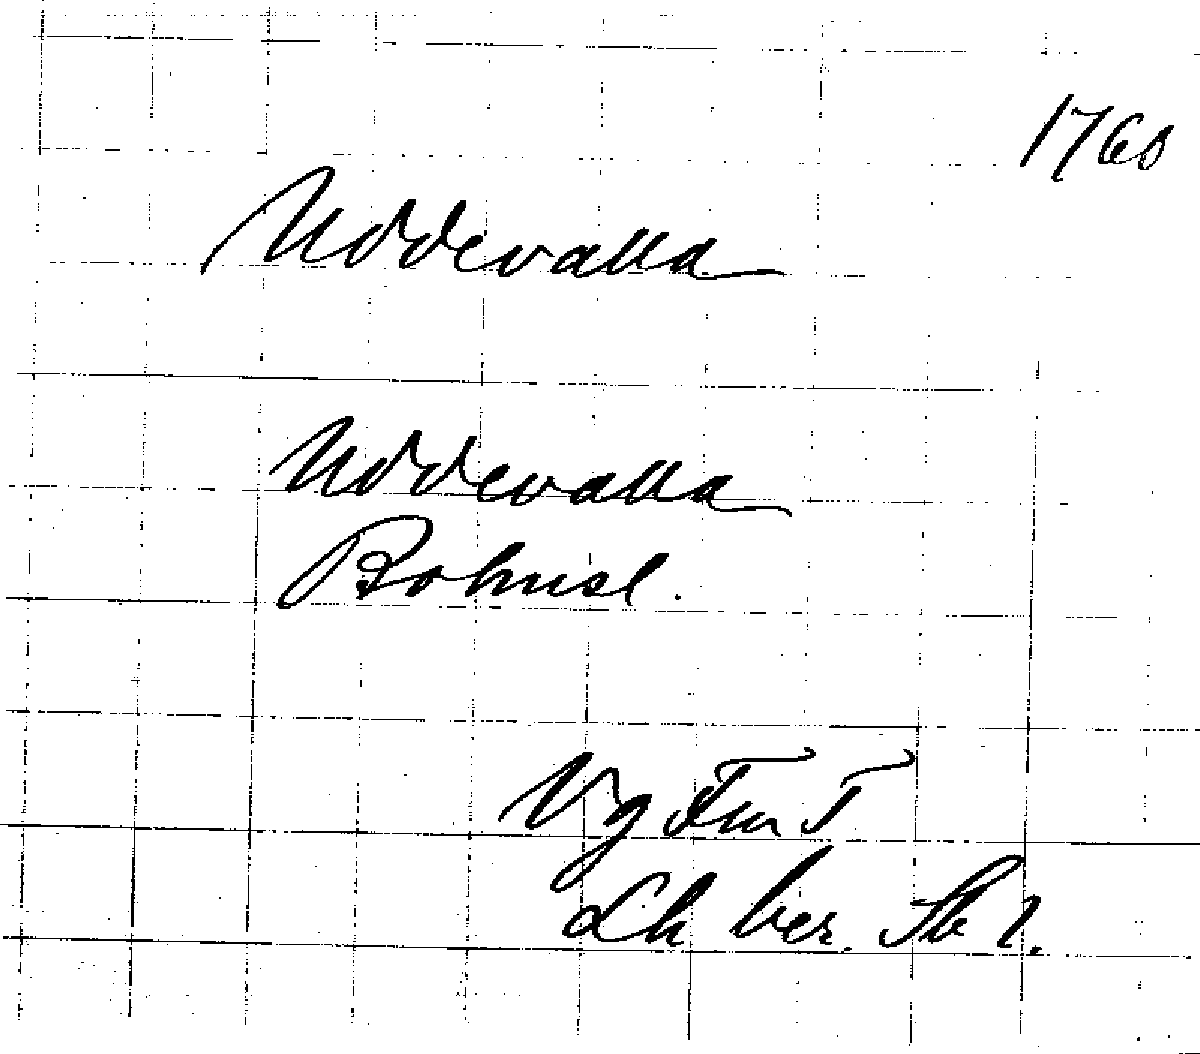 1760
Uddevalla
Uddevalla
Bohusl.
Vg Fur T
Lh ber. Sk 2.